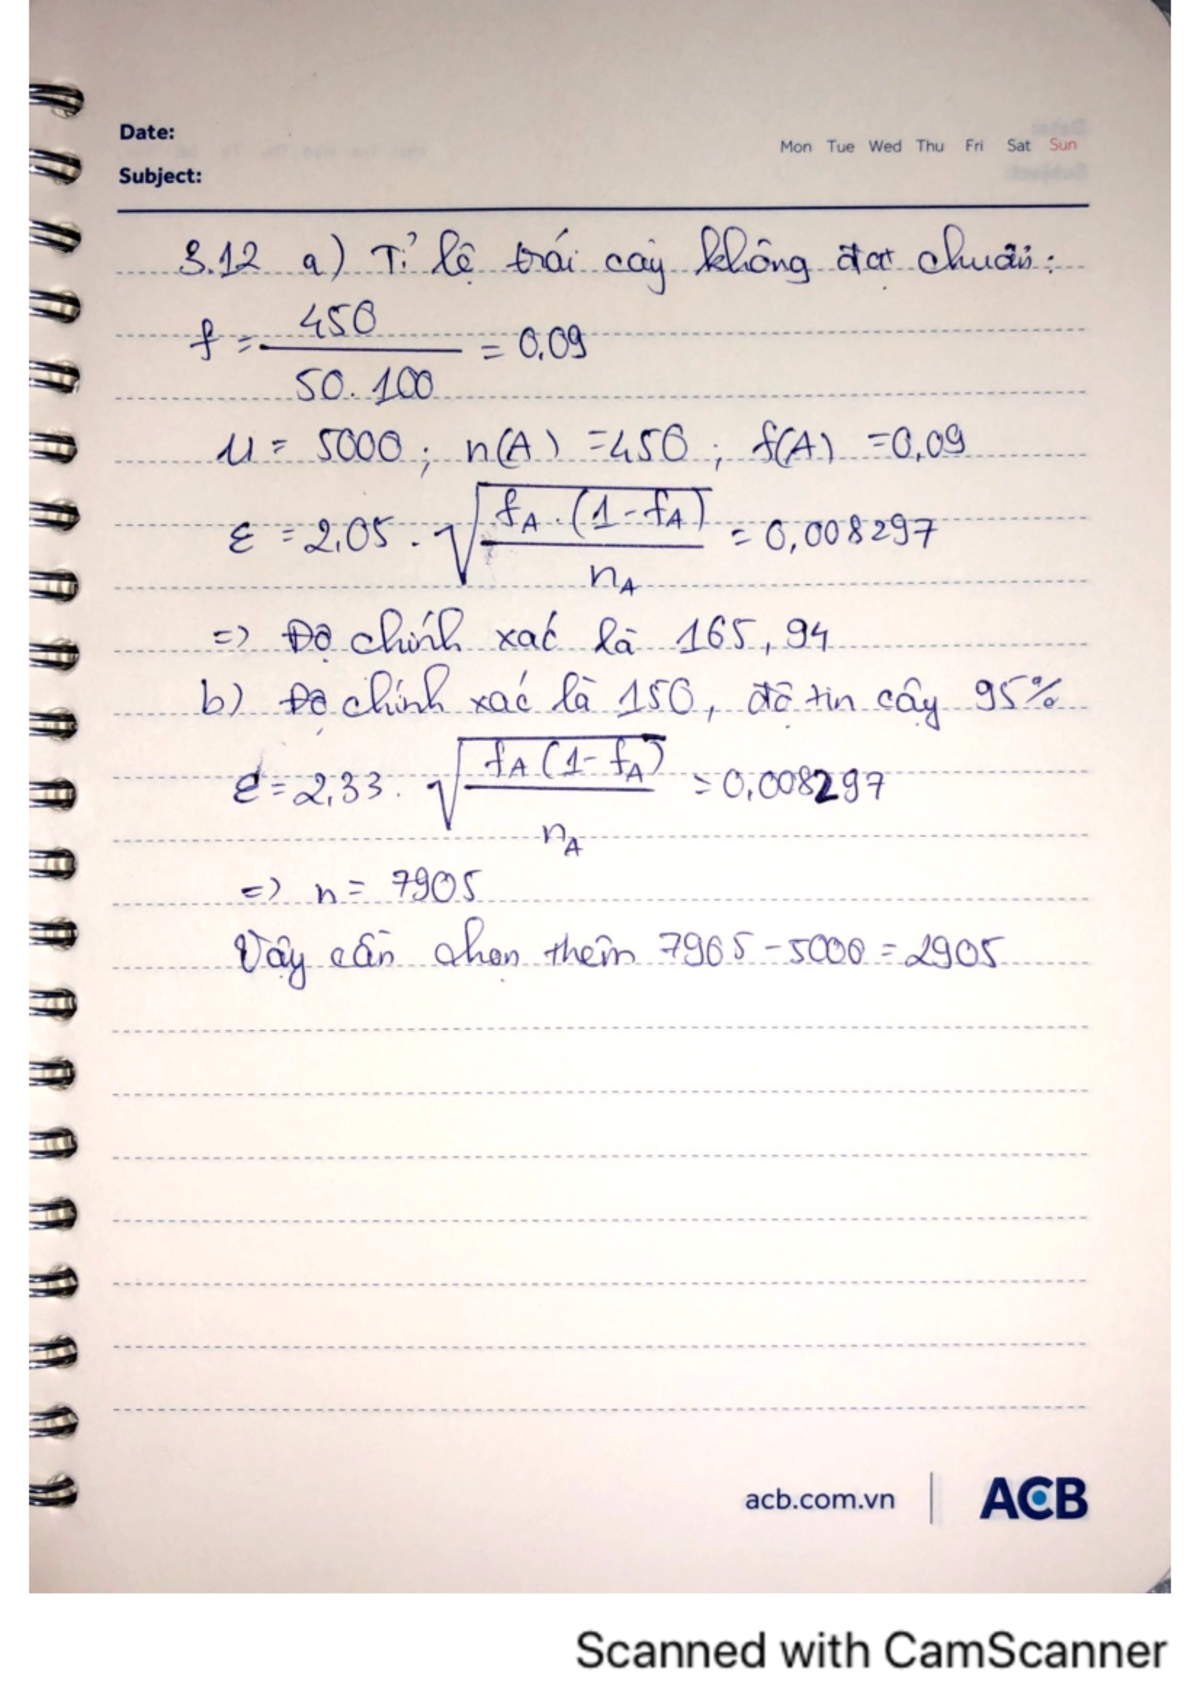 Date:
Mon Tue Wed Thu Fri Sat Sun
Subject:
3.12 a) Tỉ lệ trái cây không đạt chuẩn:
f = 450 / 50.100 = 0,09
n = 5000 ; n(A) = 450 ; f(A) = 0,09
ε = 2,05 . √(fA . (1 - fA) / nA) = 0,008297
=> Độ chính xác là 165,94
b) Độ chính xác là 150, độ tin cậy 95%
ε = 2,33 . √(fA (1 - fA) / nA) = 0,008297
=> n = 7905
Vậy cần chọn thêm 7905 - 5000 = 2905
acb.com.vn | ACB
Scanned with CamScanner